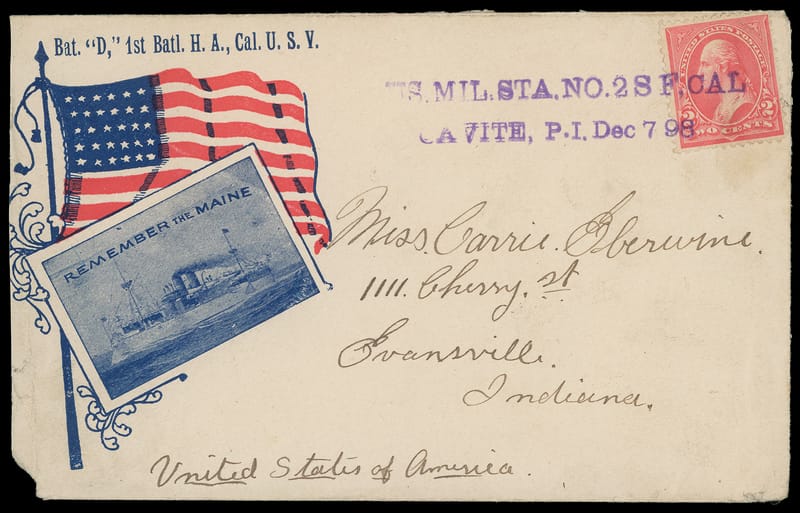 Bat. "D," 1st Batl. H. A., Cal. U. S. V.
U.S. MIL. STA. NO. 2 S F. CAL
CAVITE, P.I. Dec 7 98
UNITED STATES POSTAGE
2 TWO CENTS 2
REMEMBER THE MAINE
Miss. Carrie. Eberwine.
1111. Cherry. st
Evansville.
Indiana.
United States of America.